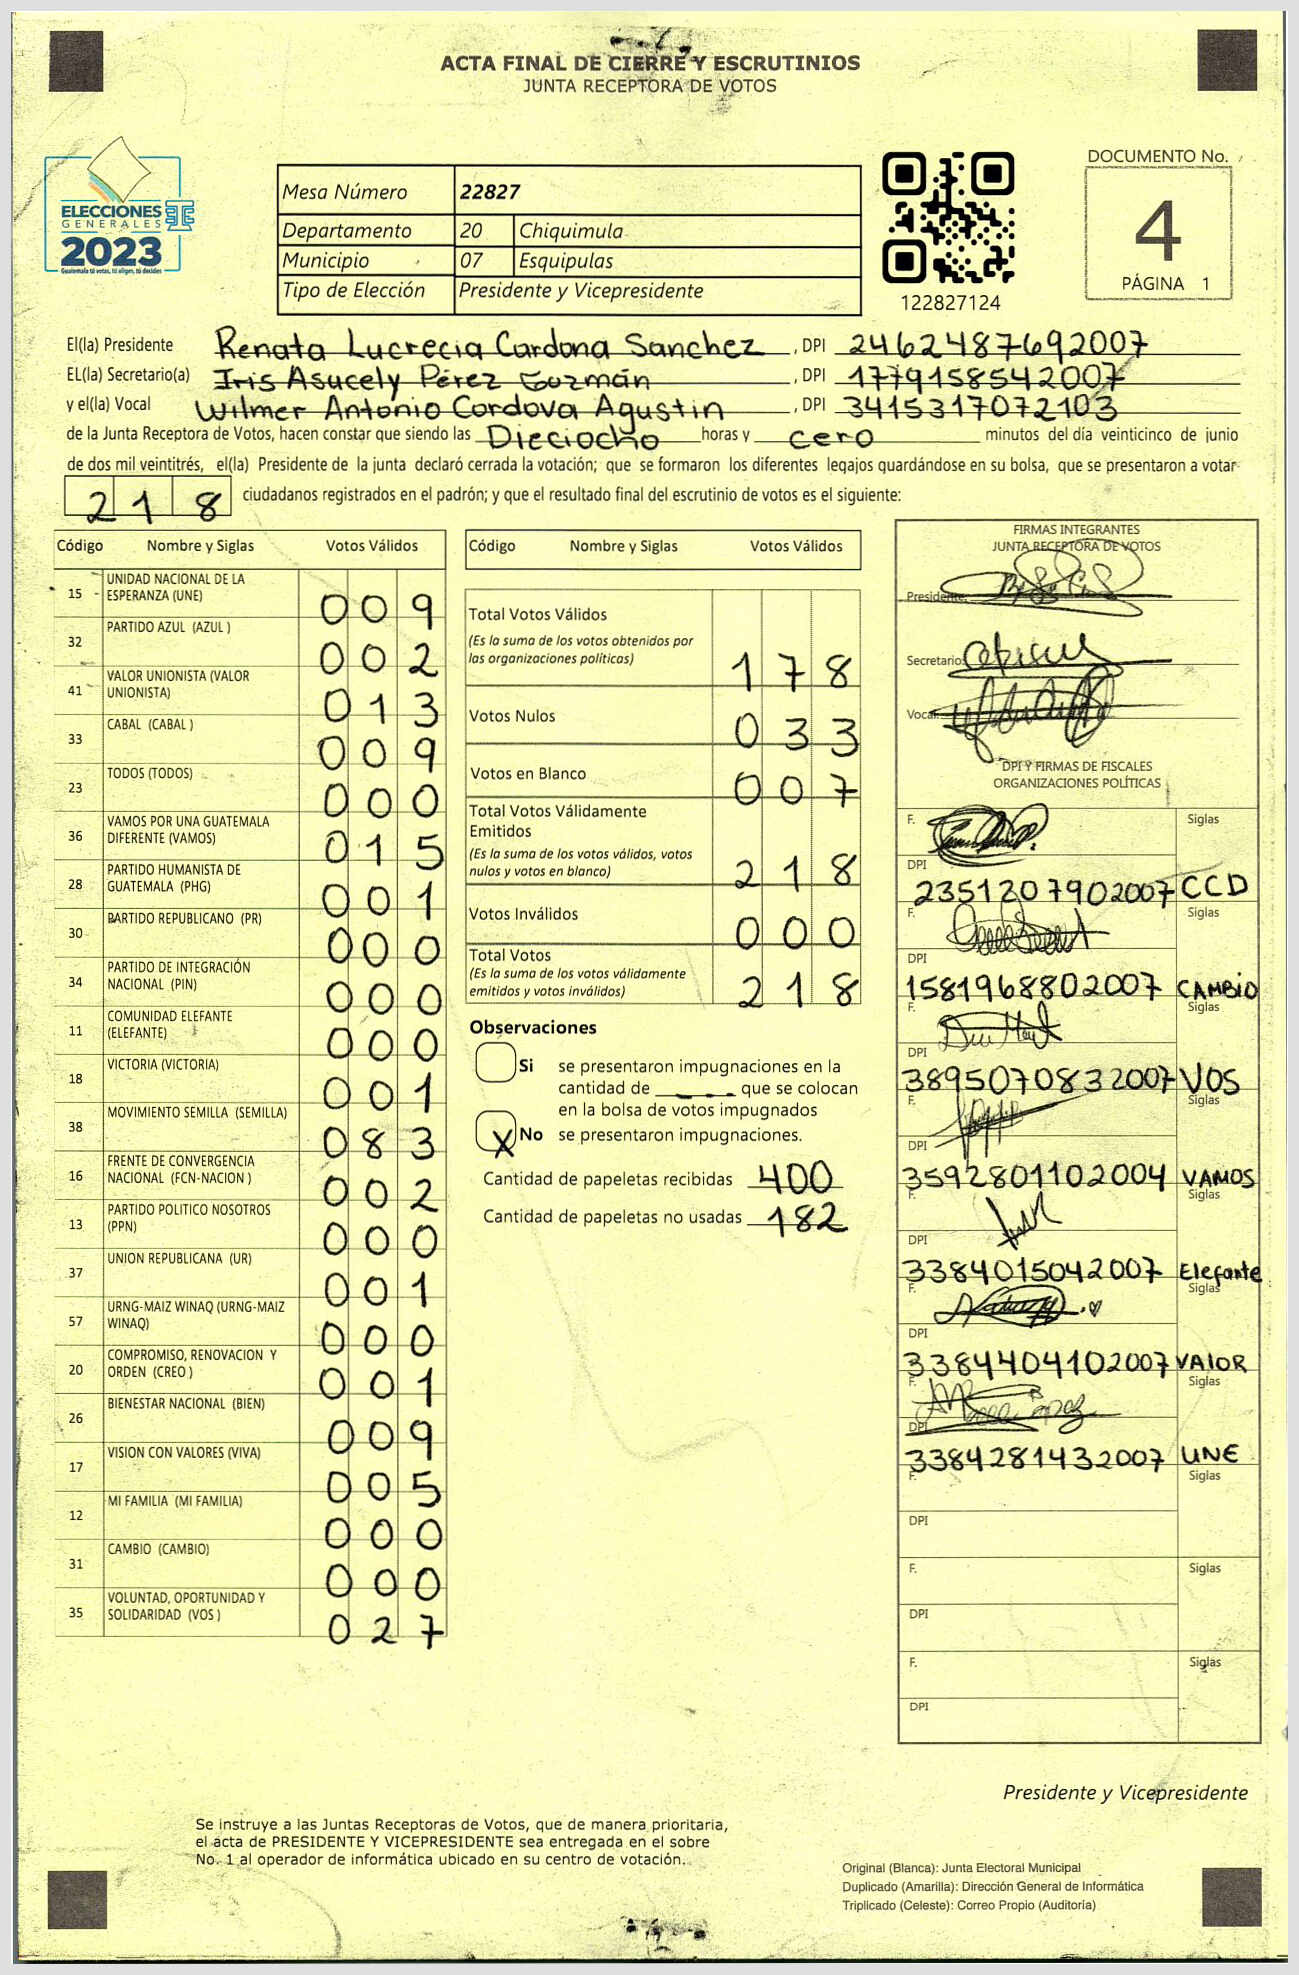 ACTA FINAL DE CIERRE Y ESCRUTINIOS
JUNTA RECEPTORA DE VOTOS
ELECCIONES
GENERALES
2023
Guatemala tú votas, tú eliges, tú decides
Mesa Número 22827
Departamento 20 Chiquimula
Municipio 07 Esquipulas
Tipo de Elección Presidente y Vicepresidente
122827124
DOCUMENTO No.
4
PÁGINA 1
El(la) Presidente Renata Lucrecia Cardona Sanchez, DPI 2462487692007
EL(la) Secretario(a) Iris Asucely Pérez Guzmán, DPI 1779158542007
y el(la) Vocal Wilmer Antonio Cordova Agustin, DPI 3415317072103
de la Junta Receptora de Votos, hacen constar que siendo las Dieciocho horas y cero minutos del día veinticinco de junio
de dos mil veintitrés, el(la) Presidente de la junta declaró cerrada la votación; que se formaron los diferentes legajos guardándose en su bolsa, que se presentaron a votar
218 ciudadanos registrados en el padrón; y que el resultado final del escrutinio de votos es el siguiente:
Código Nombre y Siglas Votos Válidos
15 UNIDAD NACIONAL DE LA ESPERANZA (UNE) 009
32 PARTIDO AZUL (AZUL ) 002
41 VALOR UNIONISTA (VALOR UNIONISTA) 013
33 CABAL (CABAL ) 009
23 TODOS (TODOS) 000
36 VAMOS POR UNA GUATEMALA DIFERENTE (VAMOS) 015
28 PARTIDO HUMANISTA DE GUATEMALA (PHG) 001
30 PARTIDO REPUBLICANO (PR) 000
34 PARTIDO DE INTEGRACIÓN NACIONAL (PIN) 000
11 COMUNIDAD ELEFANTE (ELEFANTE) 000
18 VICTORIA (VICTORIA) 001
38 MOVIMIENTO SEMILLA (SEMILLA) 083
16 FRENTE DE CONVERGENCIA NACIONAL (FCN-NACION ) 002
13 PARTIDO POLITICO NOSOTROS (PPN) 000
37 UNION REPUBLICANA (UR) 001
57 URNG-MAIZ WINAQ (URNG-MAIZ WINAQ) 000
20 COMPROMISO, RENOVACION Y ORDEN (CREO ) 001
26 BIENESTAR NACIONAL (BIEN) 009
17 VISION CON VALORES (VIVA) 005
12 MI FAMILIA (MI FAMILIA) 000
31 CAMBIO (CAMBIO) 000
35 VOLUNTAD, OPORTUNIDAD Y SOLIDARIDAD (VOS ) 027
Código Nombre y Siglas Votos Válidos
Total Votos Válidos
(Es la suma de los votos obtenidos por
las organizaciones políticas) 178
Votos Nulos 033
Votos en Blanco 007
Total Votos Válidamente
Emitidos
(Es la suma de los votos válidos, votos
nulos y votos en blanco) 218
Votos Inválidos 000
Total Votos
(Es la suma de los votos válidamente
emitidos y votos inválidos) 218
Observaciones
Si se presentaron impugnaciones en la
cantidad de ---- que se colocan
en la bolsa de votos impugnados
X No se presentaron impugnaciones.
Cantidad de papeletas recibidas 400
Cantidad de papeletas no usadas 182
FIRMAS INTEGRANTES
JUNTA RECEPTORA DE VOTOS
Presidente:
Secretario:
Vocal:
DPI Y FIRMAS DE FISCALES
ORGANIZACIONES POLÍTICAS
F. Siglas
DPI
2351207902007 CCD
F. Siglas
DPI
1581968802007 CAMBIO
F. Siglas
DPI
3895070832007 VOS
F. Siglas
DPI
3592801102004 VAMOS
F. Siglas
DPI
3384015042007 Elefante
F. Siglas
DPI
3384404102007 VALOR
F. Siglas
DPI
3384281432007 UNE
F. Siglas
DPI
F. Siglas
DPI
F. Siglas
DPI
Presidente y Vicepresidente
Se instruye a las Juntas Receptoras de Votos, que de manera prioritaria,
el acta de PRESIDENTE Y VICEPRESIDENTE sea entregada en el sobre
No. 1 al operador de informática ubicado en su centro de votación.
Original (Blanca): Junta Electoral Municipal
Duplicado (Amarilla): Dirección General de Informática
Triplicado (Celeste): Correo Propio (Auditoría)